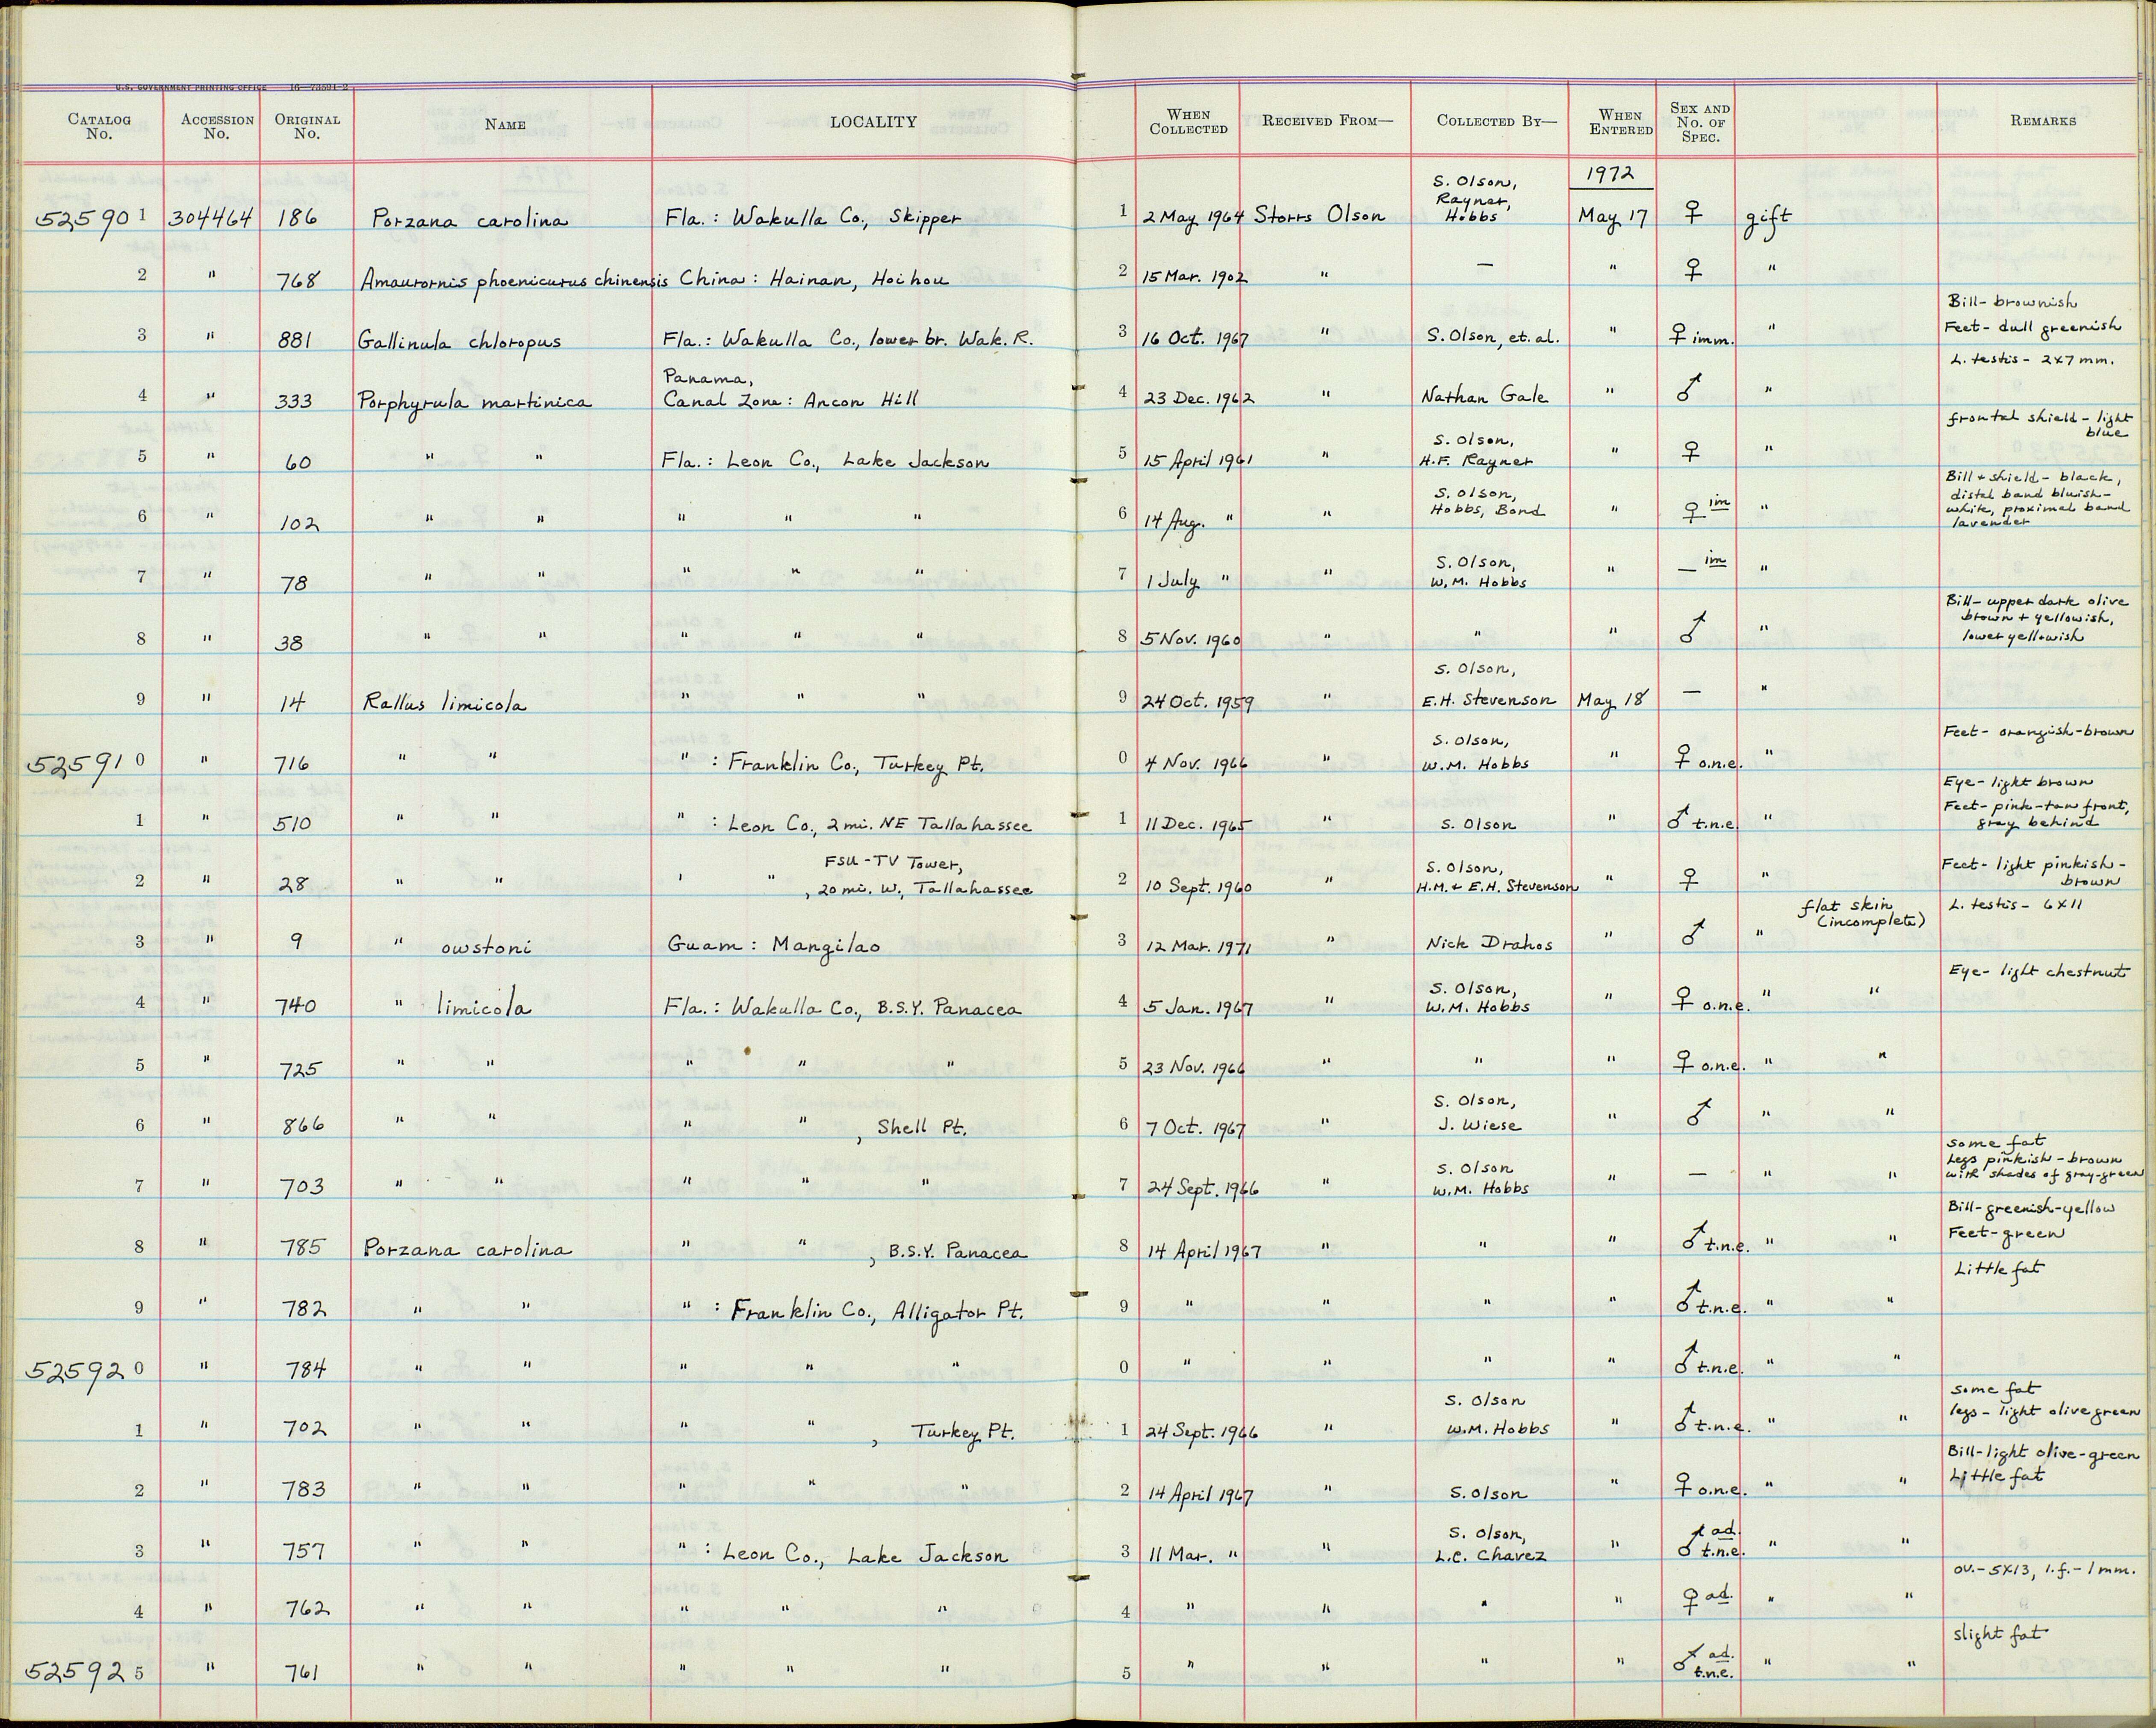 U.S. GOVERNMENT PRINTING OFFICE 16—73591-2
CATALOG No. ACCESSION No. ORIGINAL No. NAME LOCALITY WHEN COLLECTED RECEIVED FROM— COLLECTED BY— WHEN ENTERED SEX AND No. OF SPEC. REMARKS
1972
525901 304464 186 Porzana carolina Fla.: Wakulla Co., Skipper 1 2 May 1964 Storrs Olson S. Olson, Rayner, Hobbs May 17 ♀ gift
2 " 768 Amaurornis phoenicurus chinensis China: Hainan, Hoihou 2 15 Mar. 1902 " — " ♀ "
3 " 881 Gallinula chloropus Fla.: Wakulla Co., lower br. Wak. R. 3 16 Oct. 1967 " S. Olson, et. al. " ♀ imm. " Bill- brownish Feet- dull greenish
4 " 333 Porphyrula martinica Panama, Canal Zone: Ancon Hill 4 23 Dec. 1962 " Nathan Gale " ♂ " L. testis- 2x7 mm.
5 " 60 " " Fla.: Leon Co., Lake Jackson 5 15 April 1961 " S. Olson, H.F. Rayner " ♀ " frontal shield- light blue
6 " 102 " " " " " 6 14 Aug. " " S. Olson, Hobbs, Bond " ♀ im " Bill + shield- black, distal band bluish-white, proximal band lavender
7 " 78 " " " " " 7 1 July " " S. Olson, W.M. Hobbs " — im "
8 " 38 " " " " " 8 5 Nov. 1960 " " " ♂ " Bill- upper dark olive brown + yellowish, lower yellowish
9 " 14 Rallus limicola " " " 9 24 Oct. 1959 " S. Olson, E.H. Stevenson May 18 — "
525910 " 716 " " " : Franklin Co., Turkey Pt. 0 4 Nov. 1966 " S. Olson, W.M. Hobbs " ♀ o.n.e. " Feet- orangish-brown
1 " 510 " " " : Leon Co., 2 mi. NE Tallahassee 1 11 Dec. 1965 " S. Olson " ♂ t.n.e. " Eye- light brown Feet- pink-tan front, gray behind
2 " 28 " " ' " FSU-TV Tower, , 20 mi. W, Tallahassee 2 10 Sept. 1960 " S. Olson, H.M. + E.H. Stevenson " ♀ " Feet- light pinkish-brown
3 " 9 " owstoni Guam: Mangilao 3 12 Mar. 1971 " Nick Drahos " ♂ " flat skin (incomplete) L. testis- 6x11
4 " 740 " limicola Fla.: Wakulla Co., B.S.Y. Panacea 4 5 Jan. 1967 " S. Olson, W.M. Hobbs " ♀ o.n.e. " " Eye- light chestnut
5 " 725 " " " " " 5 23 Nov. 1966 " " " ♀ o.n.e. " "
6 " 866 " " " " , Shell Pt. 6 7 Oct. 1967 " S. Olson, J. Wiese " ♂ " "
7 " 703 " " " " " 7 24 Sept. 1966 " S. Olson W.M. Hobbs " — " " some fat Legs pinkish-brown with shades of gray-green
8 " 785 Porzana carolina " " , B.S.Y. Panacea 8 14 April 1967 " " " ♂ t.n.e. " " Bill-greenish-yellow Feet-green
9 " 782 " " " : Franklin Co., Alligator Pt. 9 " " " " ♂ t.n.e. " " Little fat
525920 " 784 " " " " " 0 " " " " ♂ t.n.e. " "
1 " 702 " " " " , Turkey Pt. 1 24 Sept. 1966 " S. Olson W.M. Hobbs " ♂ t.n.e. " " some fat legs- light olive green
2 " 783 " " " " " 2 14 April 1967 " S. Olson " ♀ o.n.e. " " Bill-light olive-green Little fat
3 " 757 " " " : Leon Co., Lake Jackson 3 11 Mar. " " S. Olson, L.C. Chavez " ♂ ad. t.n.e. " "
4 " 762 " " " " " 4 " " " " ♀ ad. " " ov.- 5x13, l.f.- 1 mm.
525925 " 761 " " " " " 5 " " " " ♂ ad. t.n.e. " " slight fat